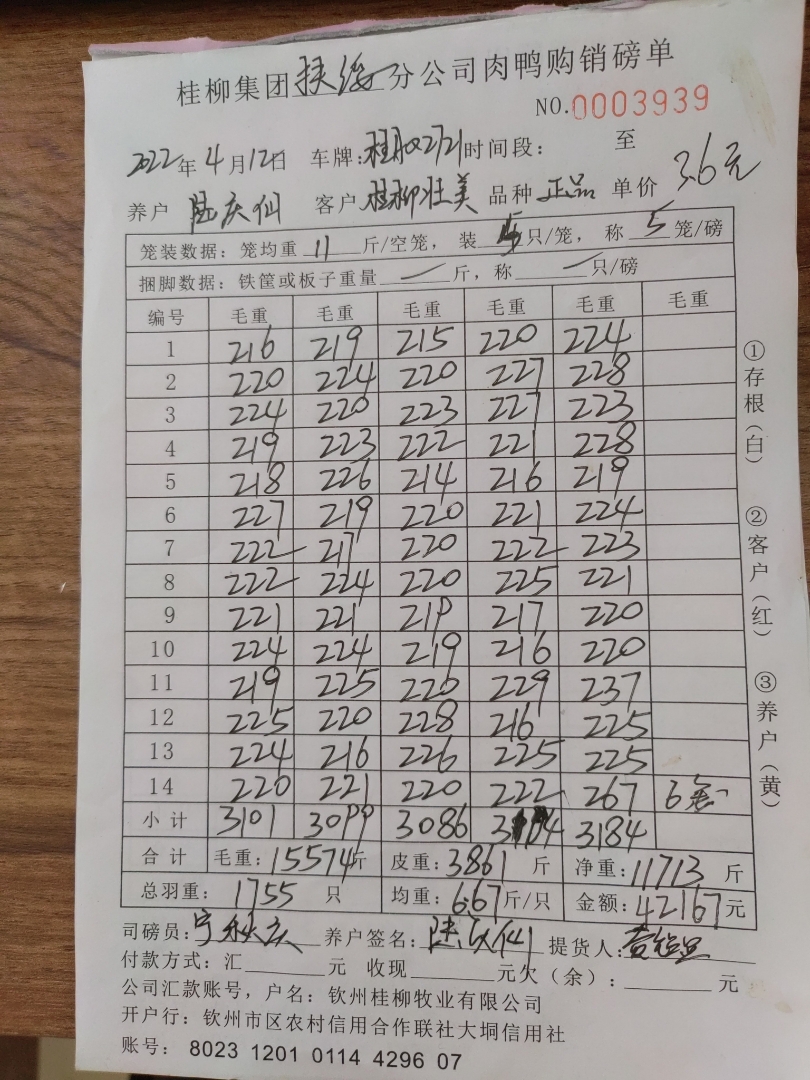 桂柳集团扶绥分公司肉鸭购销磅单
NO.0003939
2022年4月12日 车牌: 时间段: 至
养户 陆庆仙 客户 桂柳壮美 品种 正品 单价 3.6元
笼装数据: 笼均重 11 斤/空笼, 装 5 只/笼, 称 5 笼/磅
捆脚数据: 铁筐或板子重量 — 斤, 称 — 只/磅
编号 毛重 毛重 毛重 毛重 毛重 毛重
1 216 219 215 220 224
2 220 224 220 227 228
3 224 220 223 227 223
4 219 223 222 221 228
5 218 226 214 216 219
6 227 219 220 221 224
7 222 217 220 222 223
8 222 224 220 225 221
9 221 221 219 217 220
10 224 224 219 216 220
11 219 225 220 229 237
12 225 220 228 216 225
13 224 216 226 225 225
14 220 221 220 222 267 6笼
小计 3101 3099 3086 3184
合计 毛重: 15574斤 皮重: 3861 斤 净重: 11713 斤
总羽重: 1755 只 均重: 6.67斤/只 金额: 42167元
司磅员: 养户签名: 陆庆仙 提货人:
付款方式: 汇 元 收现 元欠(余): 元
公司汇款账号, 户名: 钦州桂柳牧业有限公司
开户行: 钦州市区农村信用合作联社大垌信用社
账号: 8023 1201 0114 4296 07
①存根(白)
②客户(红)
③养户(黄)